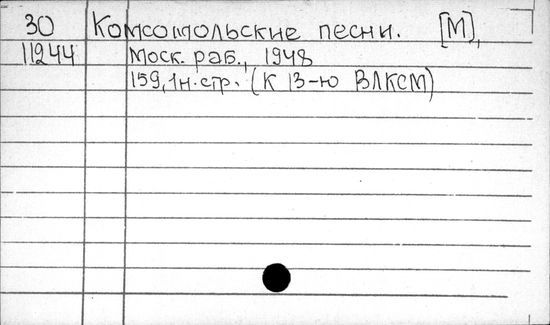 30 Комсомольские песни. [М],
11244 Моск. раб., 1948
159, 1н.стр. (К 13-ю ВЛКСМ)